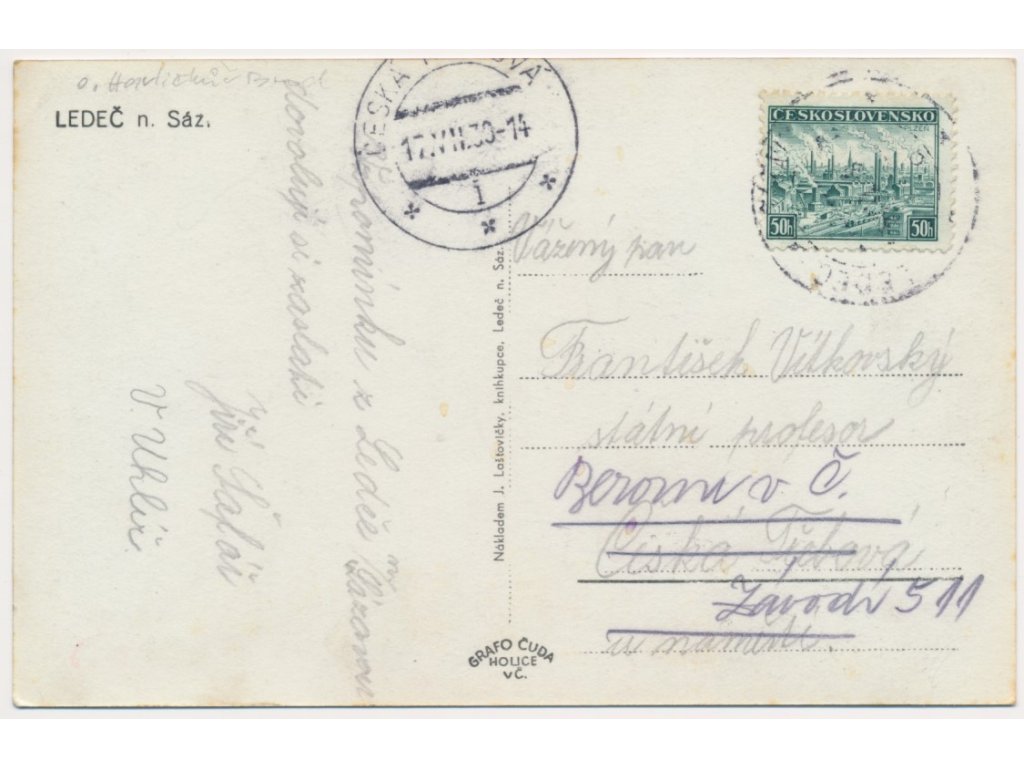 o. Havlíčkův Brod
LEDEČ n. Sáz.
ČESKÁ TŘEBOVÁ
17.VII.39-14
1
ČESKOSLOVENSKO
PLZEŇ
50h 50h
LEDEČ
Vzpomínku z Ledče n/Sázavou
dovolují si zaslati
Jiří Šafář
V. Uhlíř.
Nákladem J. Laštovičky, knihkupce, Ledeč n. Sáz.
Vážený pan
František Vítkovský
státní profesor
Beroun v Č.
Česká Třebová
Závodí 511
u náměstí.
GRAFO ČUDA
HOLICE
v Č.